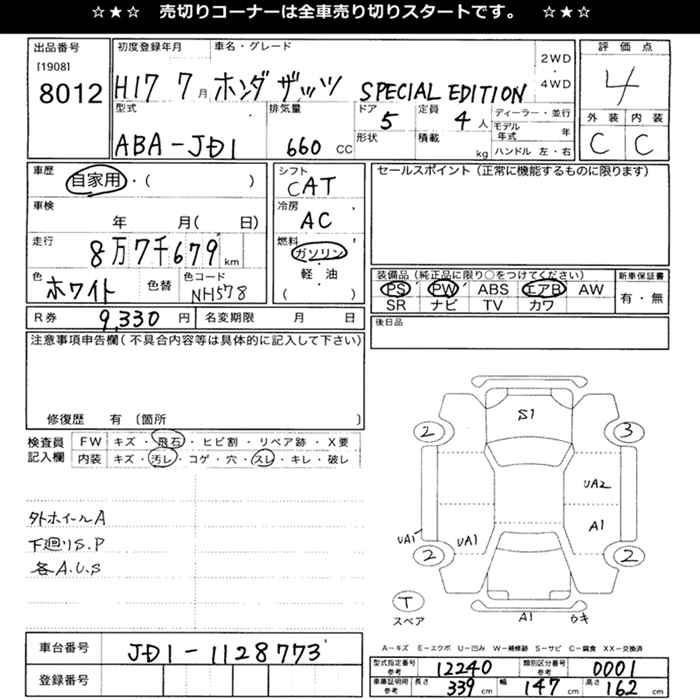 ☆★☆ 売切りコーナーは全車売り切りスタートです。 ☆★☆
出品番号
[1908]
8012
初度登録年月
車名・グレード
H17 7月 ホンダ ザッツ SPECIAL EDITION
2WD
・
4WD
評価点
4
外装 内装
C C
型式
ABA-JD1
排気量
660 CC
ドア 5
形状
定員 4 人
積載 kg
ディーラー・並行
モデル年式 年
ハンドル 左・右
車歴
自家用・( )
車検
年 月( 日)
走行
8万7千679 km
色
ホワイト
色替
色コード
NH578
シフト
CAT
冷房
AC
燃料
ガソリン
軽油
( )
セールスポイント (正常に機能するものに限ります)
装備品 (純正品に限り○をつけてください)
PS PW ABS エアB AW
SR ナビ TV カワ
新車保証書
有・無
R券 9,330 円
名変期限 月 日
後日品
注意事項申告欄(不具合内容等は具体的に記入して下さい)
修復歴 有 〔箇所 〕
検査員
記入欄
FW キズ・飛石・ヒビ割・リペア跡・X要
内装 キズ・汚レ・コゲ・穴・スレ・キレ・破レ
外ホイールA
下廻りS.P
各A.U.S
S1
2
3
UA2
A1
UA1
UA1
2
2
T
スペア
A1
ウキ
A-キズ E-エクボ U-凹み W-補修跡 S-サビ C-腐食 XX-交換済
車台番号
JD1-1128773
登録番号
型式指定番号
参考
12240
類別区分番号
参考
0001
車庫証明用
参考
長さ 339 cm 幅 147 cm 高さ 162 cm